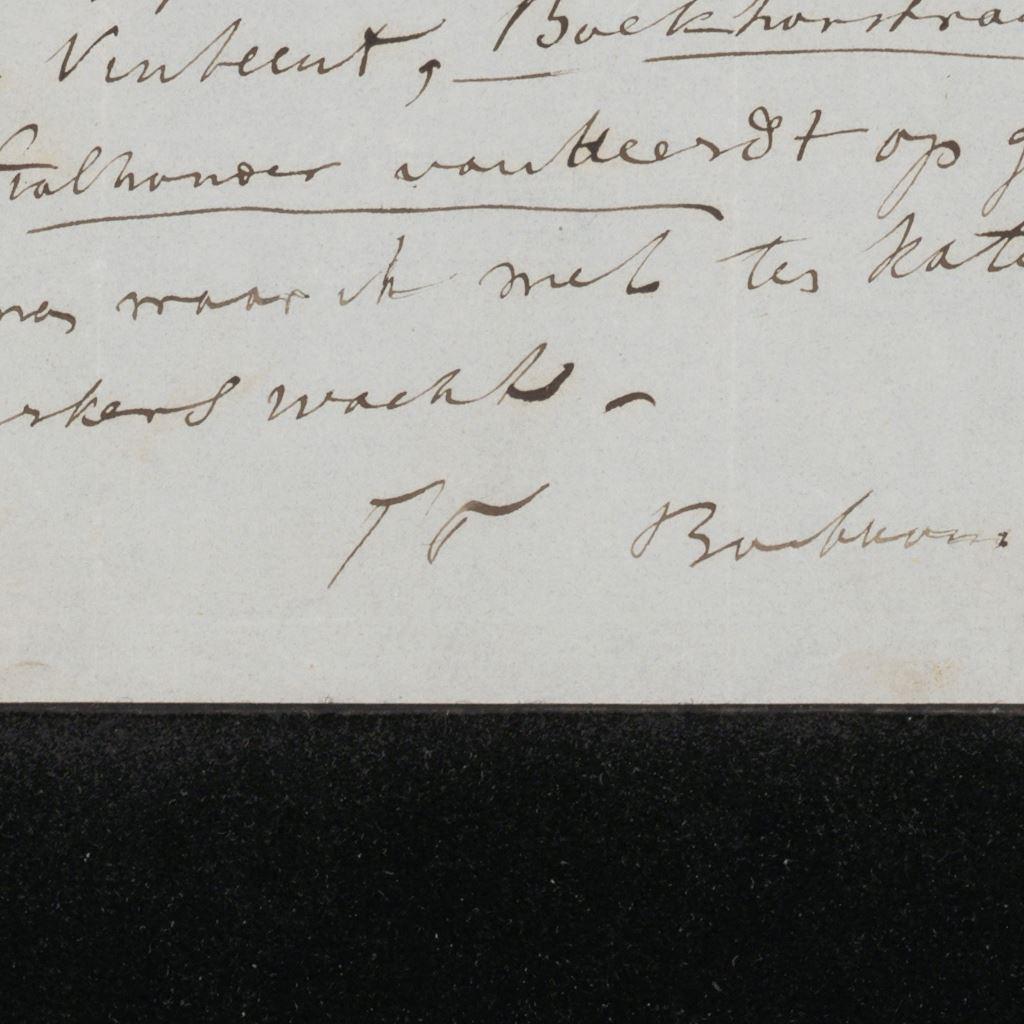 Vinkeent, Boekhorstraa
Stalhouder van Heerdt op g
waar ik met ter kate
rkers wacht. -
TT Backuon